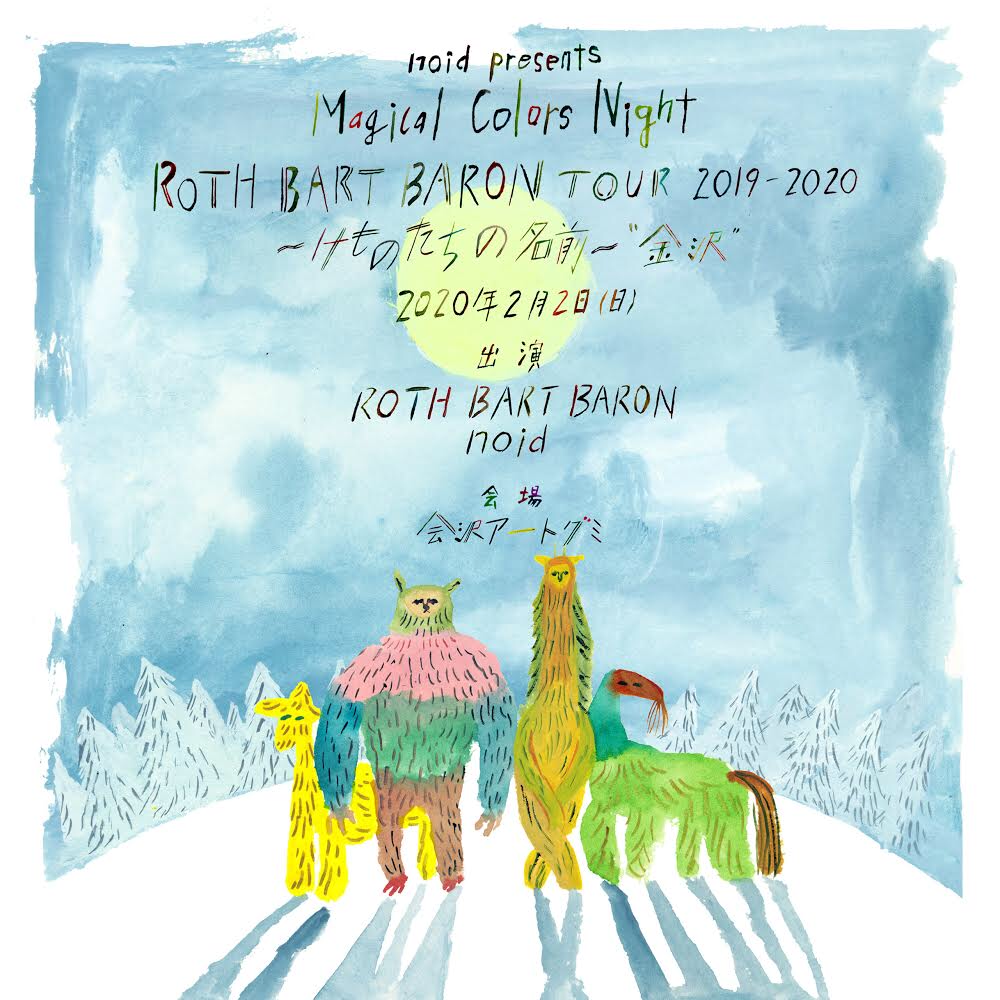 noid presents
Magical Colors Night
ROTH BART BARON TOUR 2019-2020
~けものたちの名前~"金沢"
2020年2月2日(日)
出演
ROTH BART BARON
noid
会場
金沢アートグミ